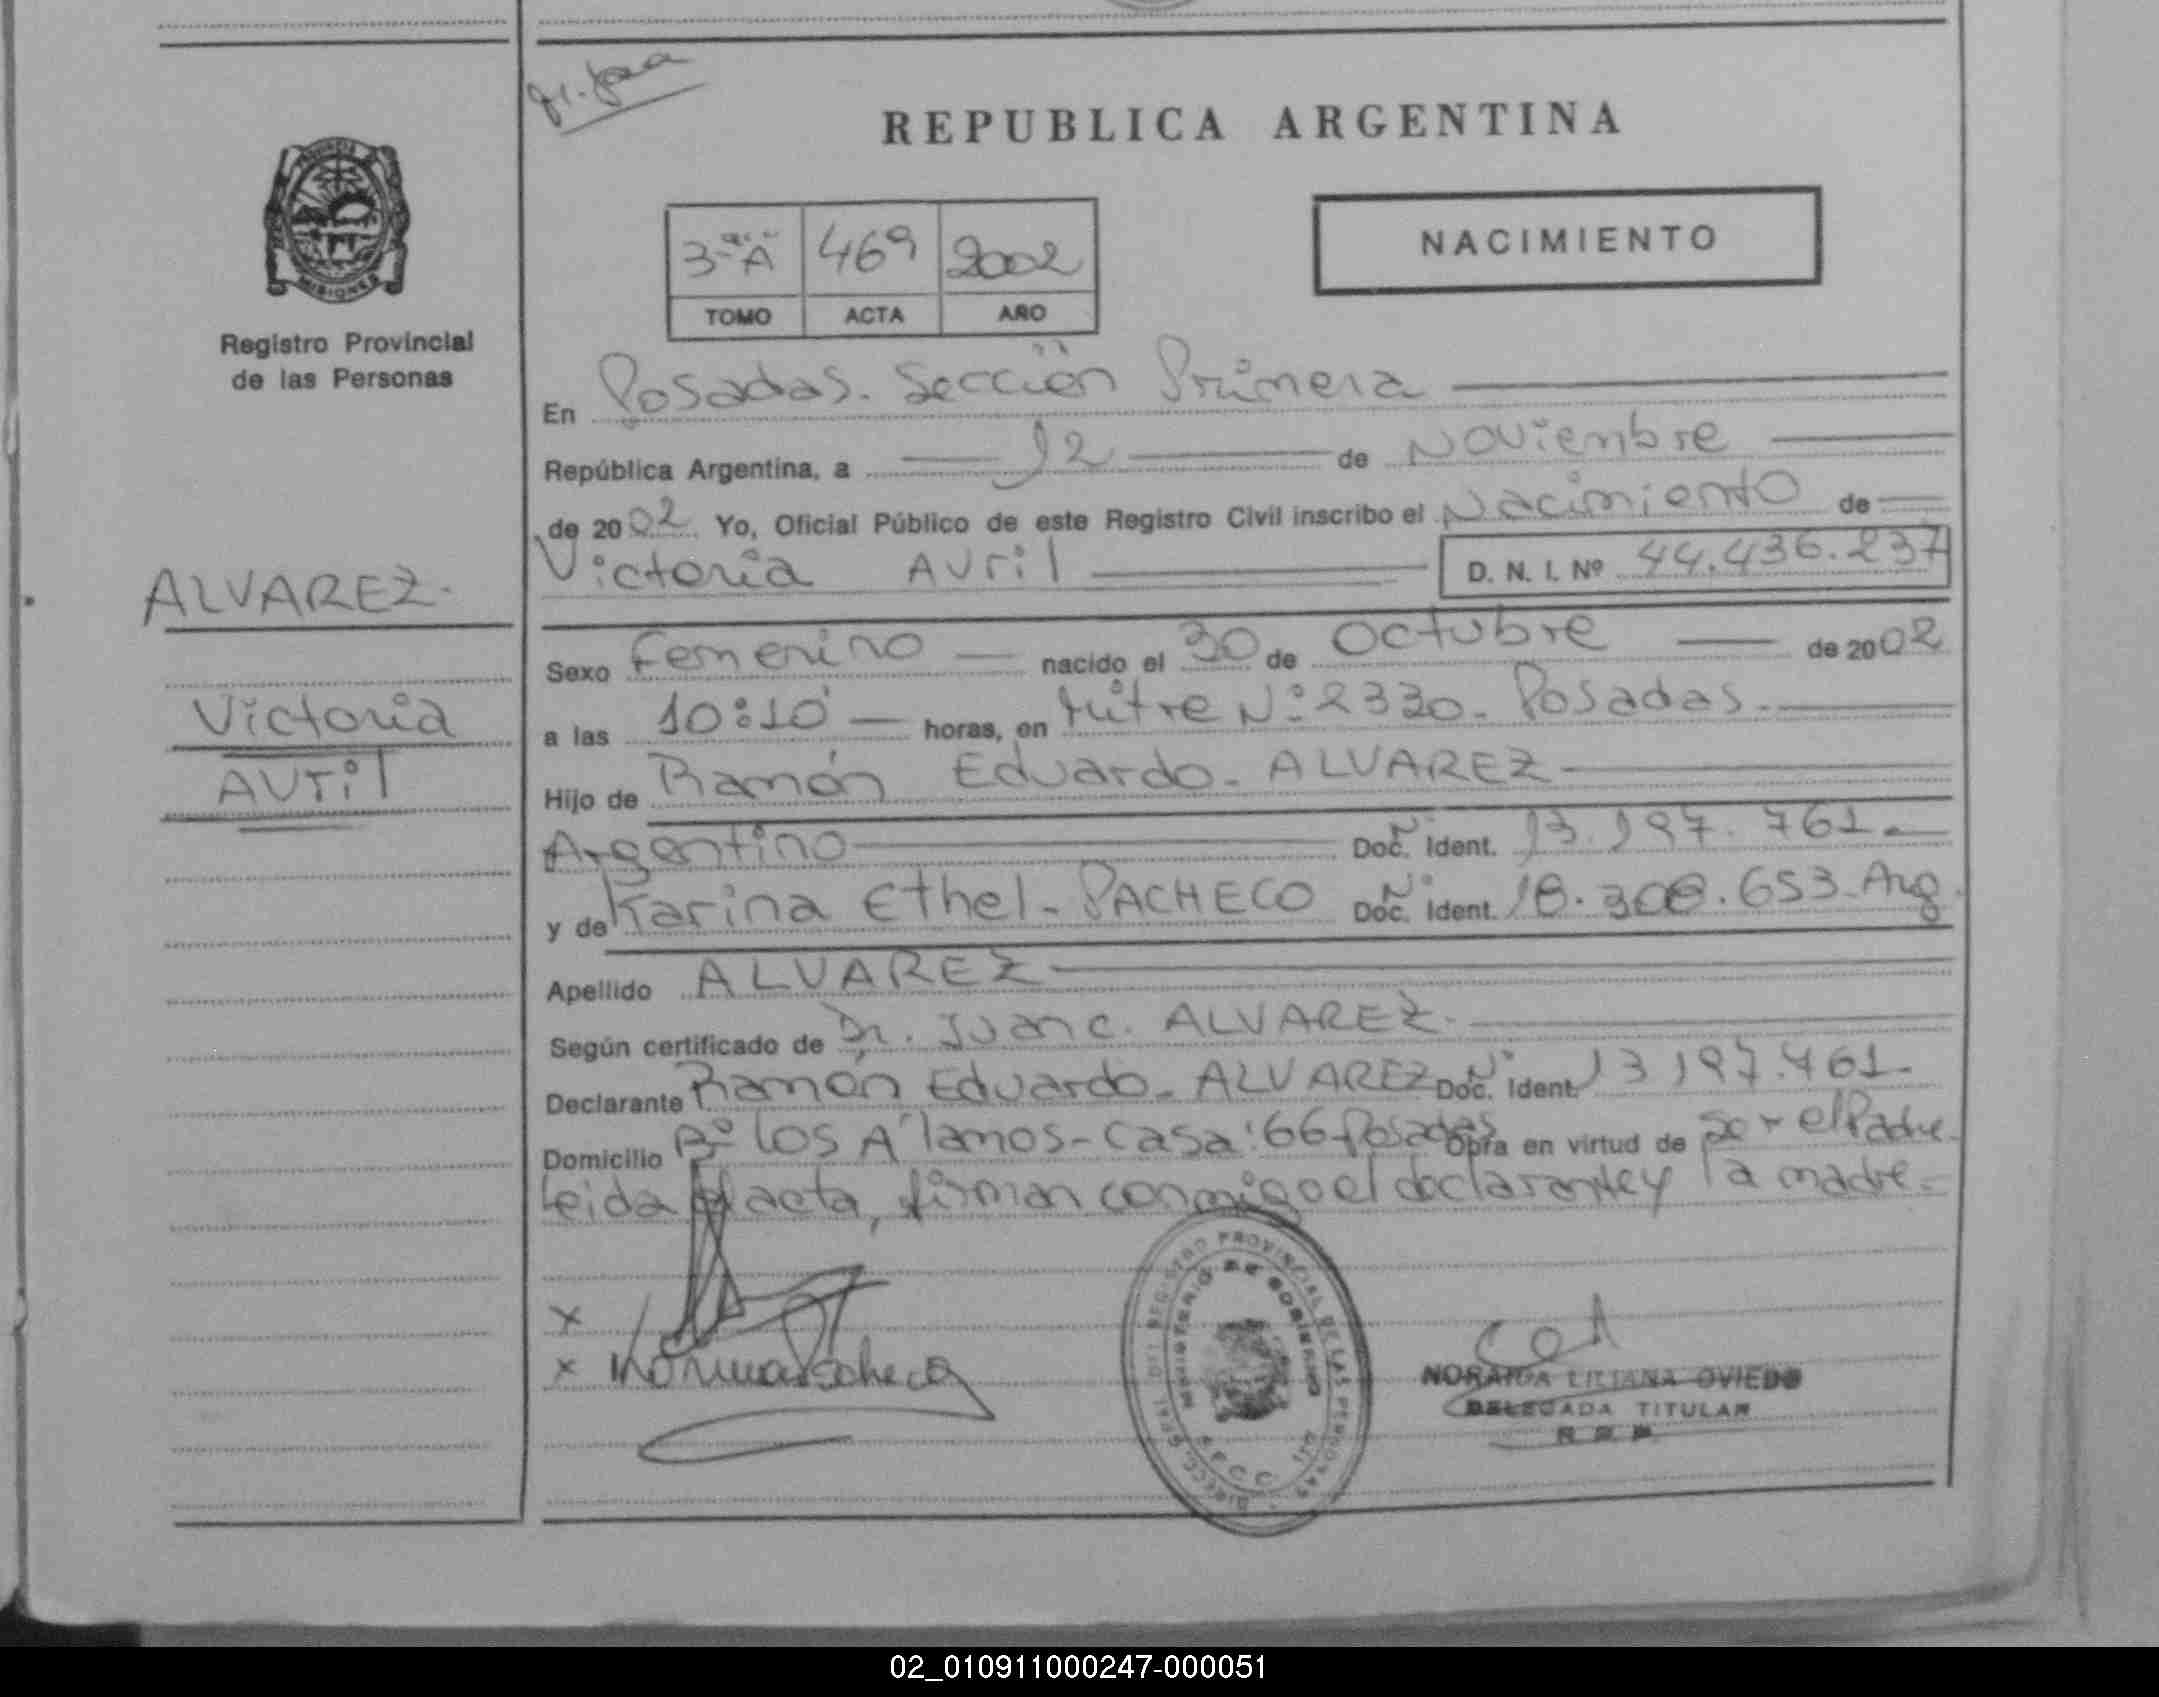 REPUBLICA ARGENTINA
PROVINCIA
MISIONES
Registro Provincial
de las Personas
3-"A" 469 2002
TOMO ACTA AÑO
NACIMIENTO
En Posadas. Sección Primera
República Argentina, a 12 de Noviembre
de 2002 Yo, Oficial Público de este Registro Civil inscribo el Nacimiento de
Victoria Avril D. N. I. Nº 44.436.237
ALVAREZ.
Victoria
Avril
Sexo Femenino nacido el 30 de Octubre de 2002
a las 10:10 horas, en Mitre Nº 2330. Posadas.
Hijo de Ramón Eduardo. ALVAREZ
Argentino Doc. Ident. 13.197.761.
y de Karina Ethel. PACHECO Doc. Ident. 18.308.653. Arg.
Apellido ALVAREZ
Según certificado de Dr. Juan c. ALVAREZ.
Declarante Ramón Eduardo. ALVAREZ Doc. Ident. 13197.761.
Domicilio Bº Los Alamos-Casa:66 Posadas Obra en virtud de ser el Padre.
Leida el acta, firman conmigo el declarante y la madre.
x
x
REGISTRO PROVINCIAL DE LAS PERSONAS
MINISTERIO DE GOBIERNO
NORAIDA LILIANA OVIEDO
DELEGADA TITULAR
02_010911000247-000051